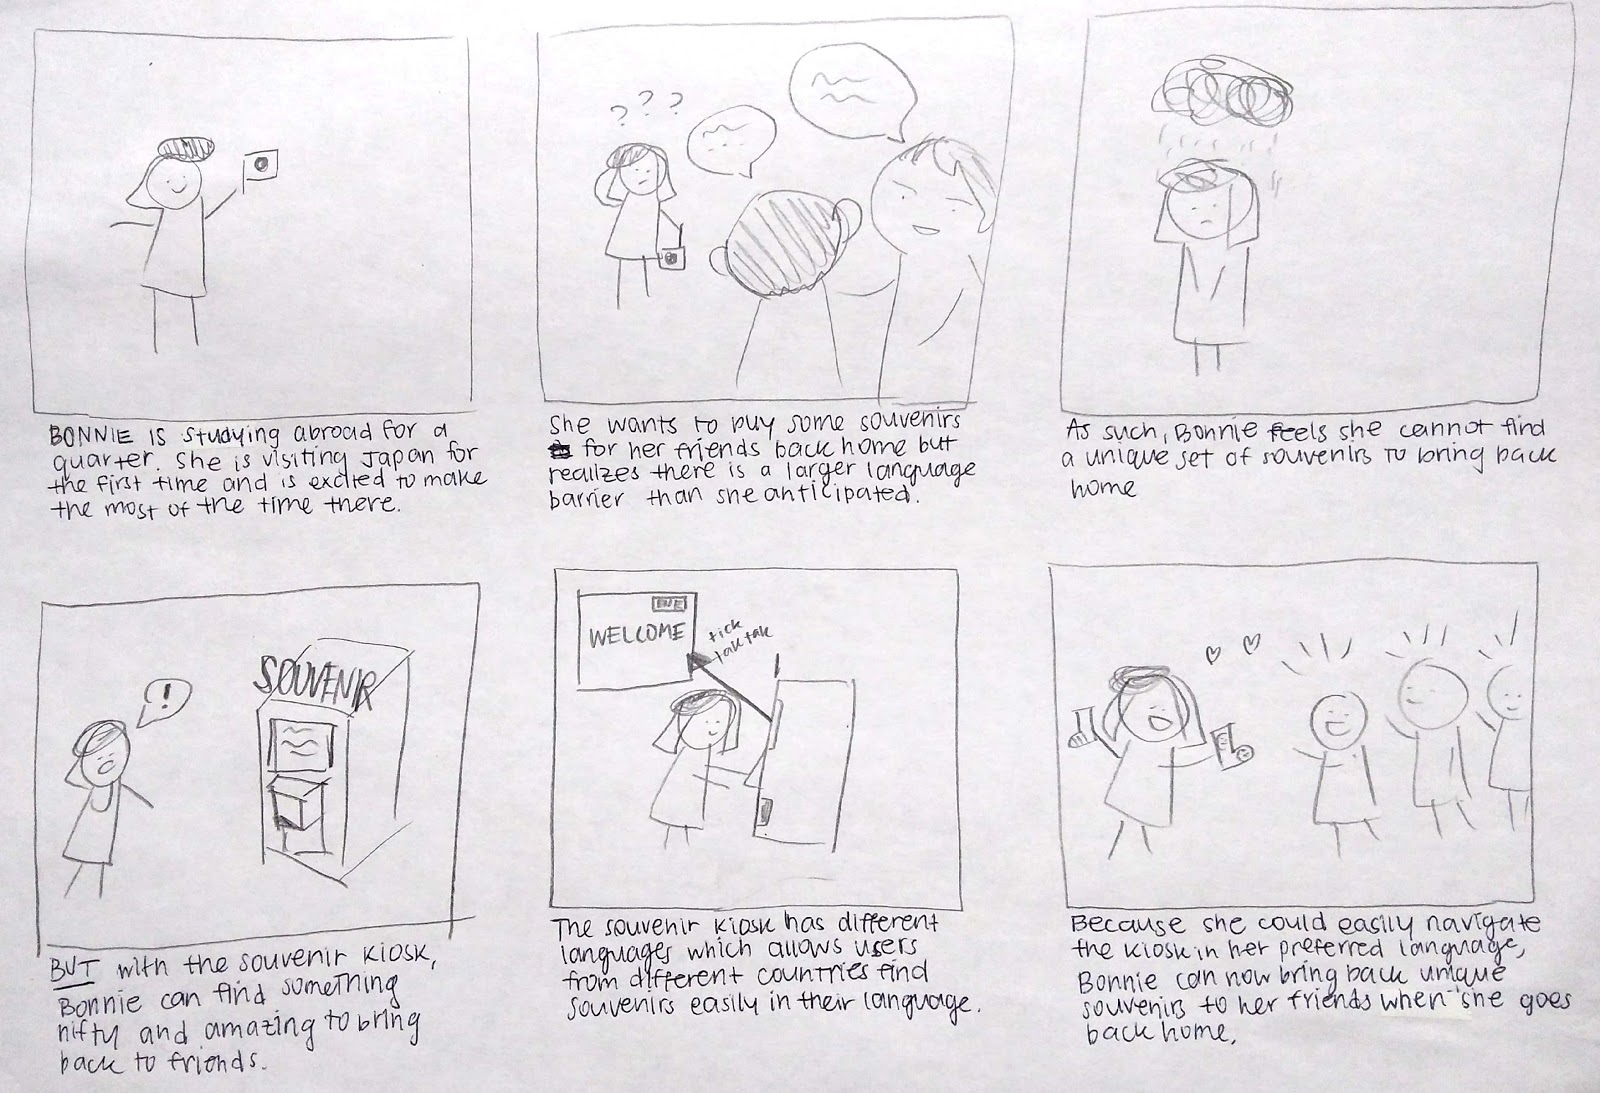 ? ? ?
BONNIE is studying abroad for a
quarter. She is visiting Japan for
the first time and is excited to make
the most of the time there.
She wants to buy some souvenirs
for her friends back home but
realizes there is a larger language
barrier than she anticipated.
As such, Bonnie feels she cannot find
a unique set of souvenirs to bring back
home
!
SOUVENIR
WELCOME
tick
tak tak
BUT with the souvenir kiosk,
Bonnie can find something
nifty and amazing to bring
back to friends.
The souvenir kiosk has different
languages which allows users
from different countries find
souvenirs easily in their language.
Because she could easily navigate
the kiosk in her preferred language,
Bonnie can now bring back unique
souvenirs to her friends when she goes
back home.